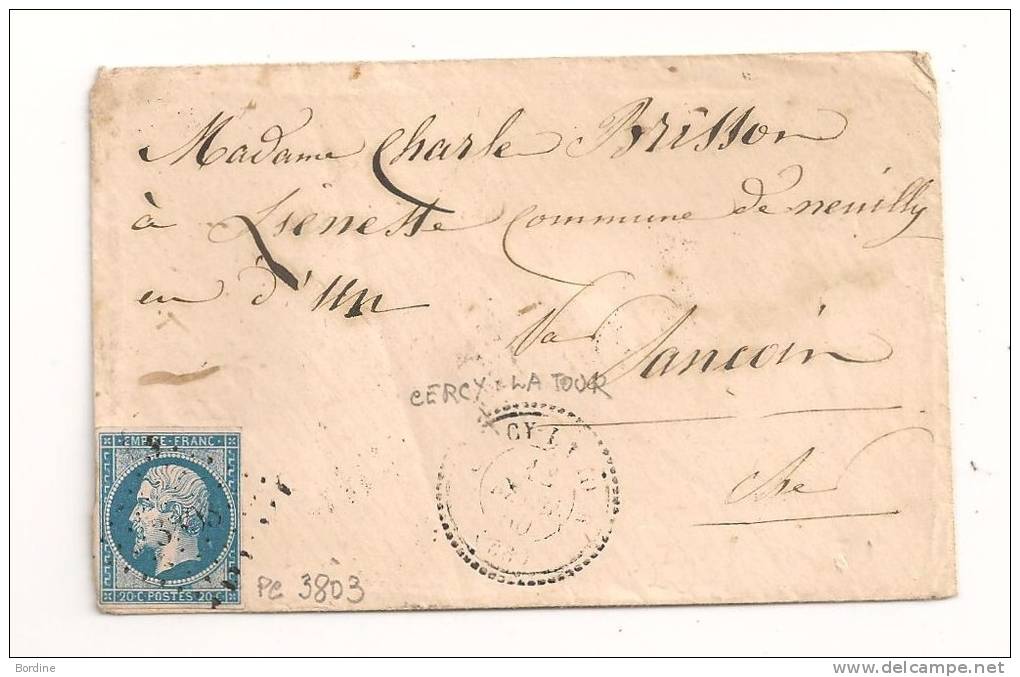 Madame Charle Brisson
à Lienesse commune de neuilly
en d'un
Sancoin
CERCY-LA TOUR
CY LA
che
EMPIRE-FRANC
20·C·POSTES 20·C
PC 3803
Bordine
delcampe.net